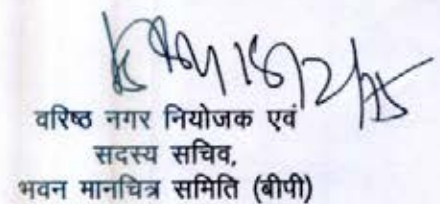 वरिष्ठ नगर नियोजक एवं
सदस्य सचिव,
भवन मानचित्र समिति (बीपी)